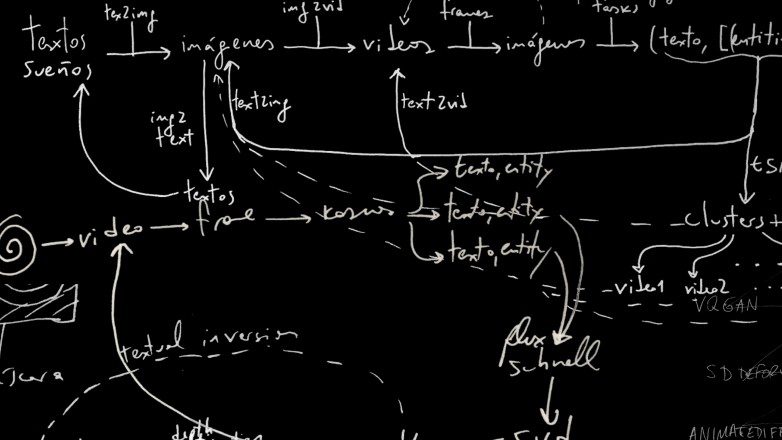 text2img
img2vid
frames
tasks
textos
sueños
imágenes
videos
imágenes
(texto, [(entiti
text2img
text2vid
img2
text
textos
texto, entity
texto, entity
texto, entity
video
frame
kosmos
clusters +
video1
video2
VQGAN
flux
schnell
textual inversion
depth